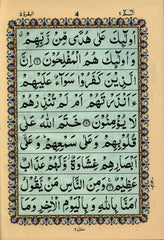 البقرة ٢
4
الٓمّٓ ١
اُولٰٓئِكَ عَلٰى هُدًى مِّنْ رَّبِّهِمْ ۙ
وَاُولٰٓئِكَ هُمُ الْمُفْلِحُوْنَ ۝ اِنَّ
الَّذِيْنَ كَفَرُوْا سَوَآءٌ عَلَيْهِمْ
ءَاَنْذَرْتَهُمْ اَمْ لَمْ تُنْذِرْهُمْ
لَا يُؤْمِنُوْنَ ۝ خَتَمَ اللّٰهُ عَلٰى
قُلُوْبِهِمْ وَعَلٰى سَمْعِهِمْ ؕ وَعَلٰٓى
اَبْصَارِهِمْ غِشَاوَةٌ ؗ وَّلَهُمْ عَذَابٌ
عَظِيْمٌ ۝ وَمِنَ النَّاسِ مَنْ يَّقُوْلُ
اٰمَنَّا بِاللّٰهِ وَبِالْيَوْمِ الْاٰخِرِ وَمَا